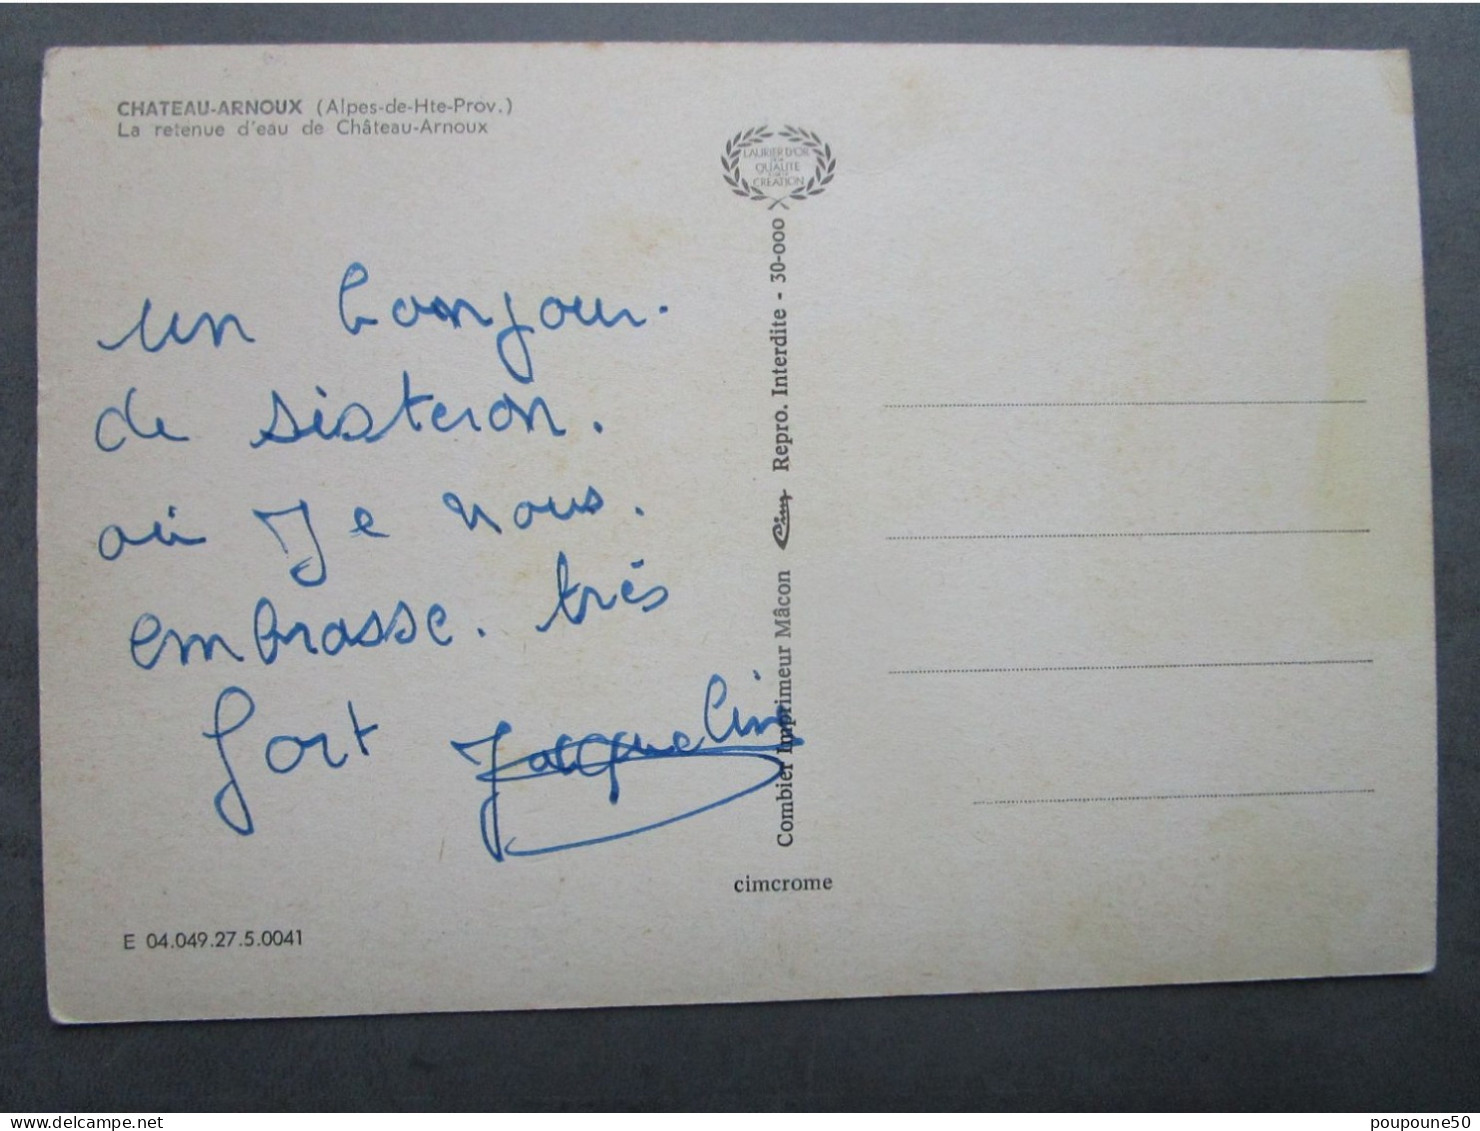 CHATEAU-ARNOUX (Alpes-de-Hte-Prov.)
La retenue d'eau de Château-Arnoux
un bonjour.
de sisteron.
où Je vous.
embrasse. très
fort Jacqueline
E 04.049.27.5.0041
LAURIER D'OR
DE LA
QUALITÉ
DANS LA
CRÉATION
Combier Imprimeur Mâcon Cim Repro. Interdite - 30-000
cimcrome
poupoune50